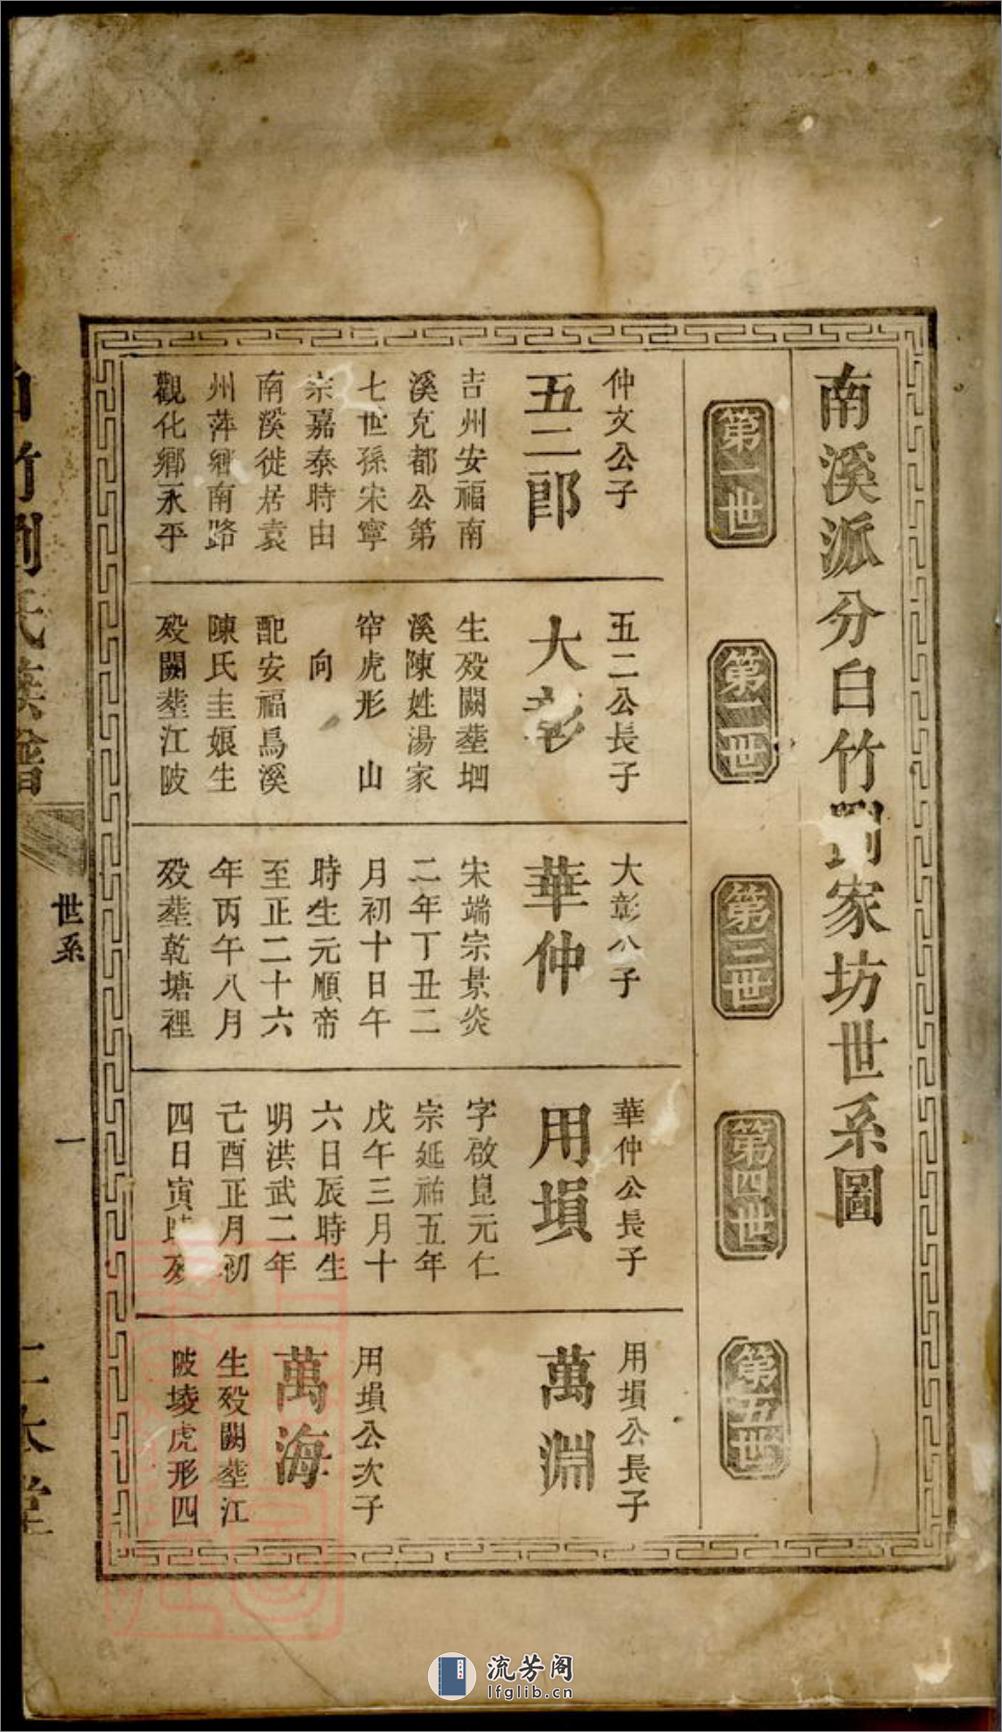 南溪派分白竹劉家坊世系圖
第一世
第二世
第三世
第四世
第五世
仲文公子
五二郎
吉州安福南
溪克都公第
七世孫宋寧
宗嘉泰時由
南溪徙居袁
州萍鄉南路
觀化鄉永平
五二公長子
大彰
生歿闕塟㘭
溪陳姓湯家
帘虎形 山
向
配安福馬溪
陳氏圭娘生
歿闕塟江陂
大彰公子
華仲
宋端宗景炎
二年丁丑二
月初十日午
時生元順帝
至正二十六
年丙午八月
歿塟乾塘裡
華仲公長子
用塤
字啟崑元仁
宗延祐五年
戊午三月十
六日辰時生
明洪武二年
己酉正月初
四日寅時歿
用塤公長子
萬淵
用塤公次子
萬海
生歿闕塟江
陂堎虎形四
白竹劉氏族譜
世系
一
堂
流芳阁
lfglib.cn